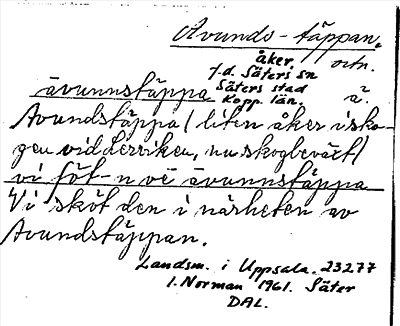 Avunds-täppan.
åker. ortn.
f.d. Säters sn
Säters stad
ävunnstäppa Kopp. län. ä.
Avundstäppa (liten åker i sko-
gen vid Lerviken, nu skogbeväxt)
vi föt-n ve ävunnstäppa
Vi sköt den i närheten av
Avundstäppan.
Landsm. i Uppsala. 23277
I. Norman 1961. Säter
DAL.